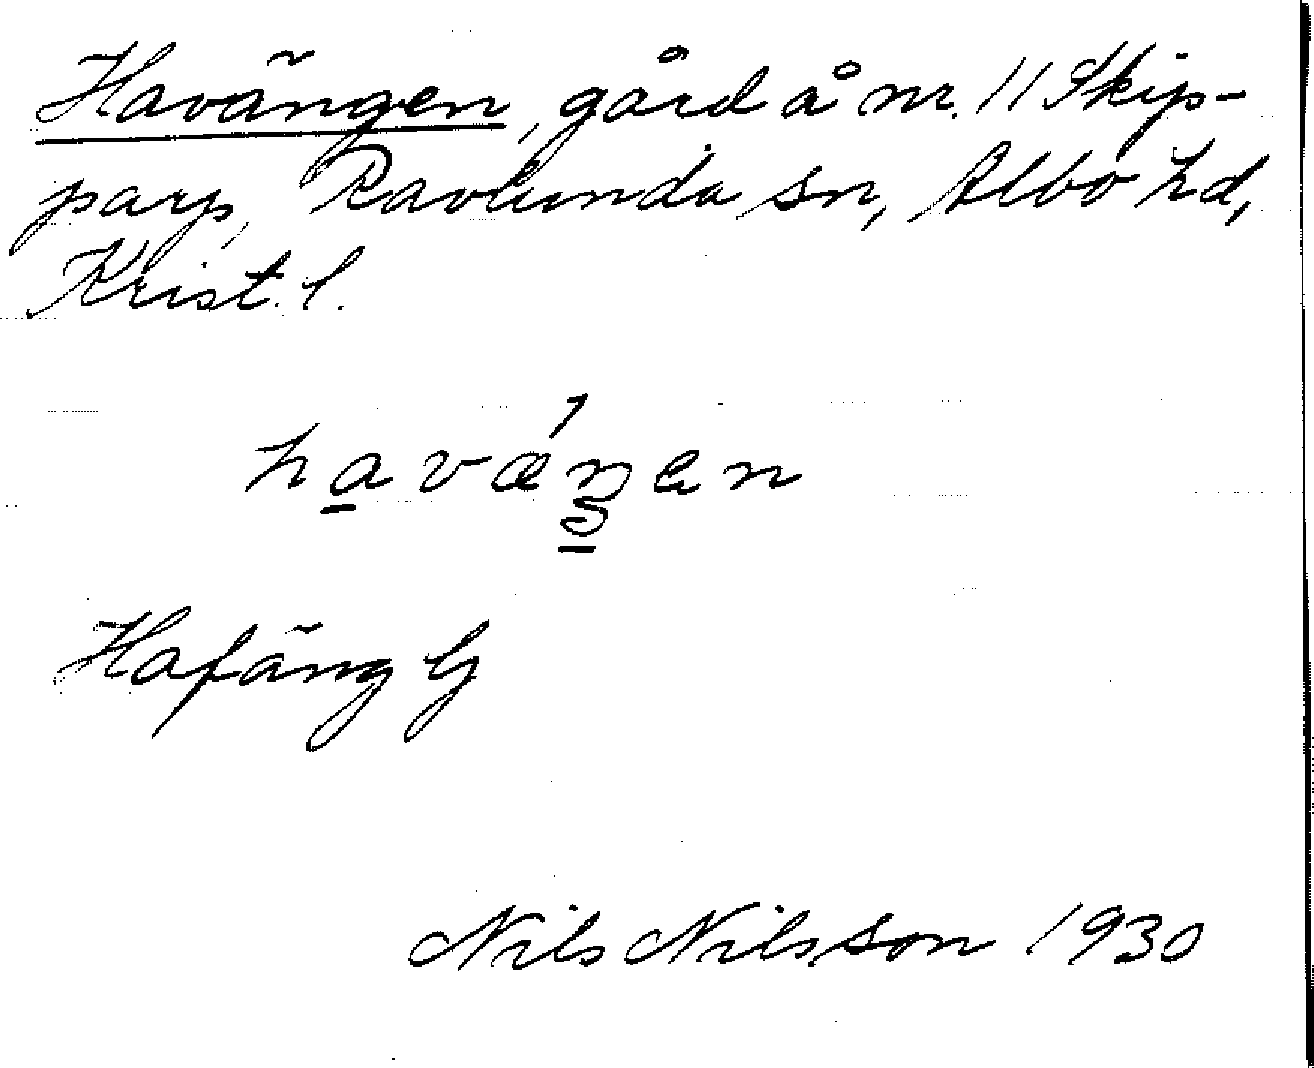 Havängen, gård å nr. 11 Skip-
parp, Ravlunda sn, Albo hd,
Krist. l.
havæŋen
Hafäng G
Nils Nilsson 1930